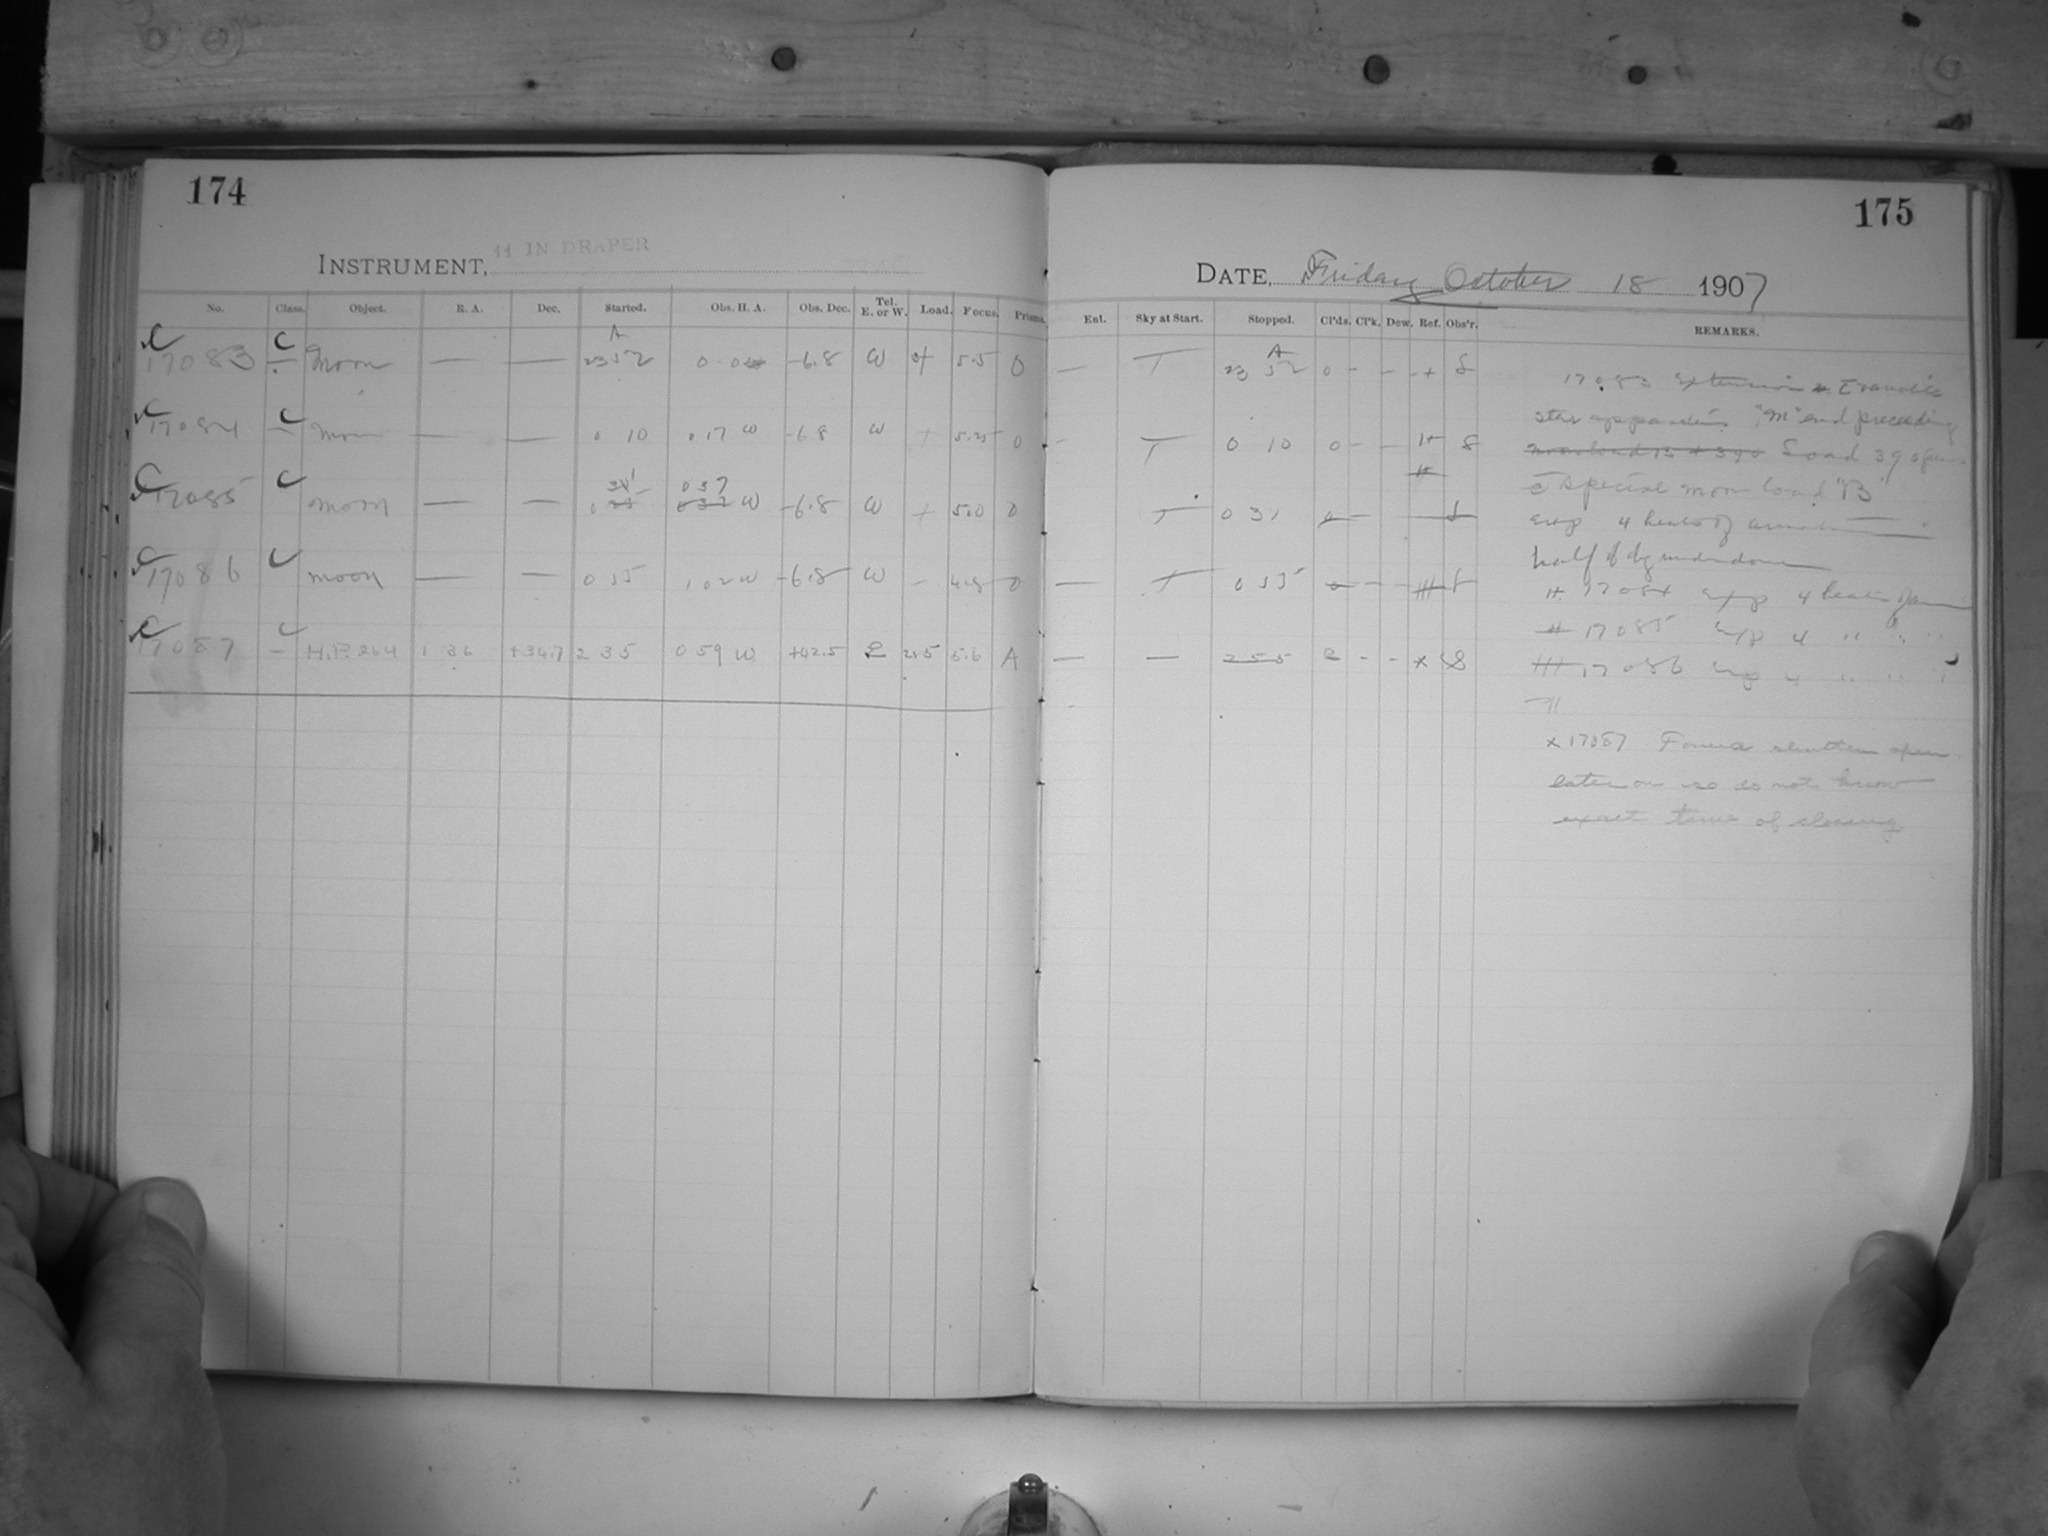 174
INSTRUMENT, 11 IN DRAPER
No. Class. Object. R. A. Dec. Started. Obs. H. A. Obs. Dec. Tel. E. or W. Load. Focus. Prisms.
A
17083 C Moon — — 23 52 0.0 -6.8 W + 5.5 0
17084 C Moon — — 0 10 0 17 W -6.8 W + 5.25 0
17085 C Moon — — 0 31 0 37 W -6.8 W + 5.0 0
17086 C Moon — — 0 55 1 02 W -6.8 W - 4.8 0
17087 C H.P. 264 1 36 +34.7 2 35 0 59 W +42.5 E 2.5 5.6 A
175
DATE, Friday October 18 1907
Ent. Sky at Start. Stopped. Cl'ds. Cl'k. Dew. Ref. Obs'r. REMARKS.
A
— T 23 52 0 - - + S
- T 0 10 0 - - H S
T 0 31 0 -
— T 0 55 0 - -
— — 2 55 2 - - x S
17083 extension
star "M" end preceding
Load 39
special moon load "B"
exp 4 beats of
half of
17084 exp 4 beats
17085 exp 4 " " "
17086 exp 4 " " "
x 17087 Found shutter open
later on so do not know
exact time of closing